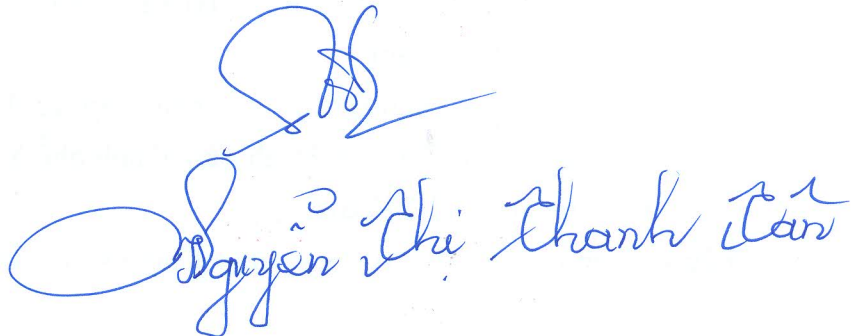 Nguyễn Thị Thanh Tân